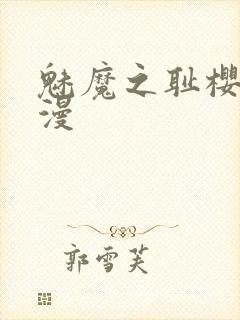 魅魔之耻樱
漫
郭雪芙